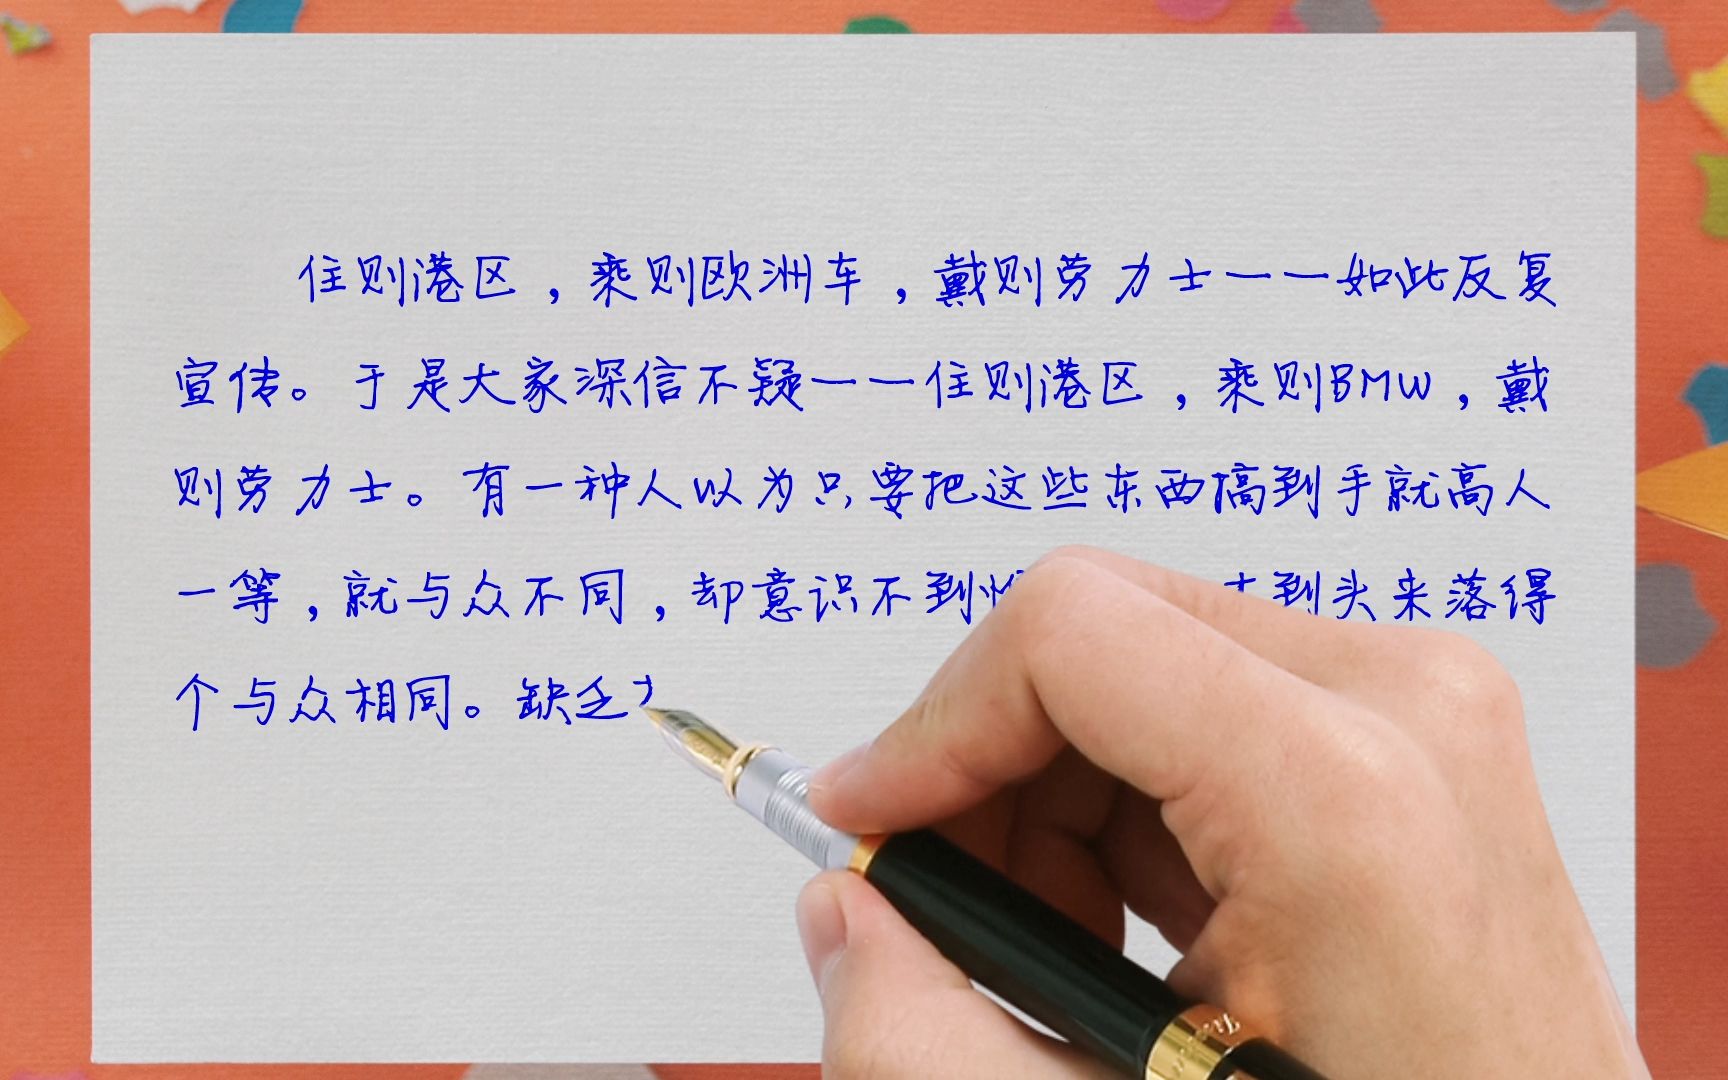 住则港区，乘则欧洲车，戴则劳力士一一如此反复
宣传。于是大家深信不疑一一住则港区，乘则BMW，戴
则劳力士。有一种人以为只要把这些东西搞到手就高人
一等，就与众不同，却意识不到 到头来落得
个与众相同。缺乏